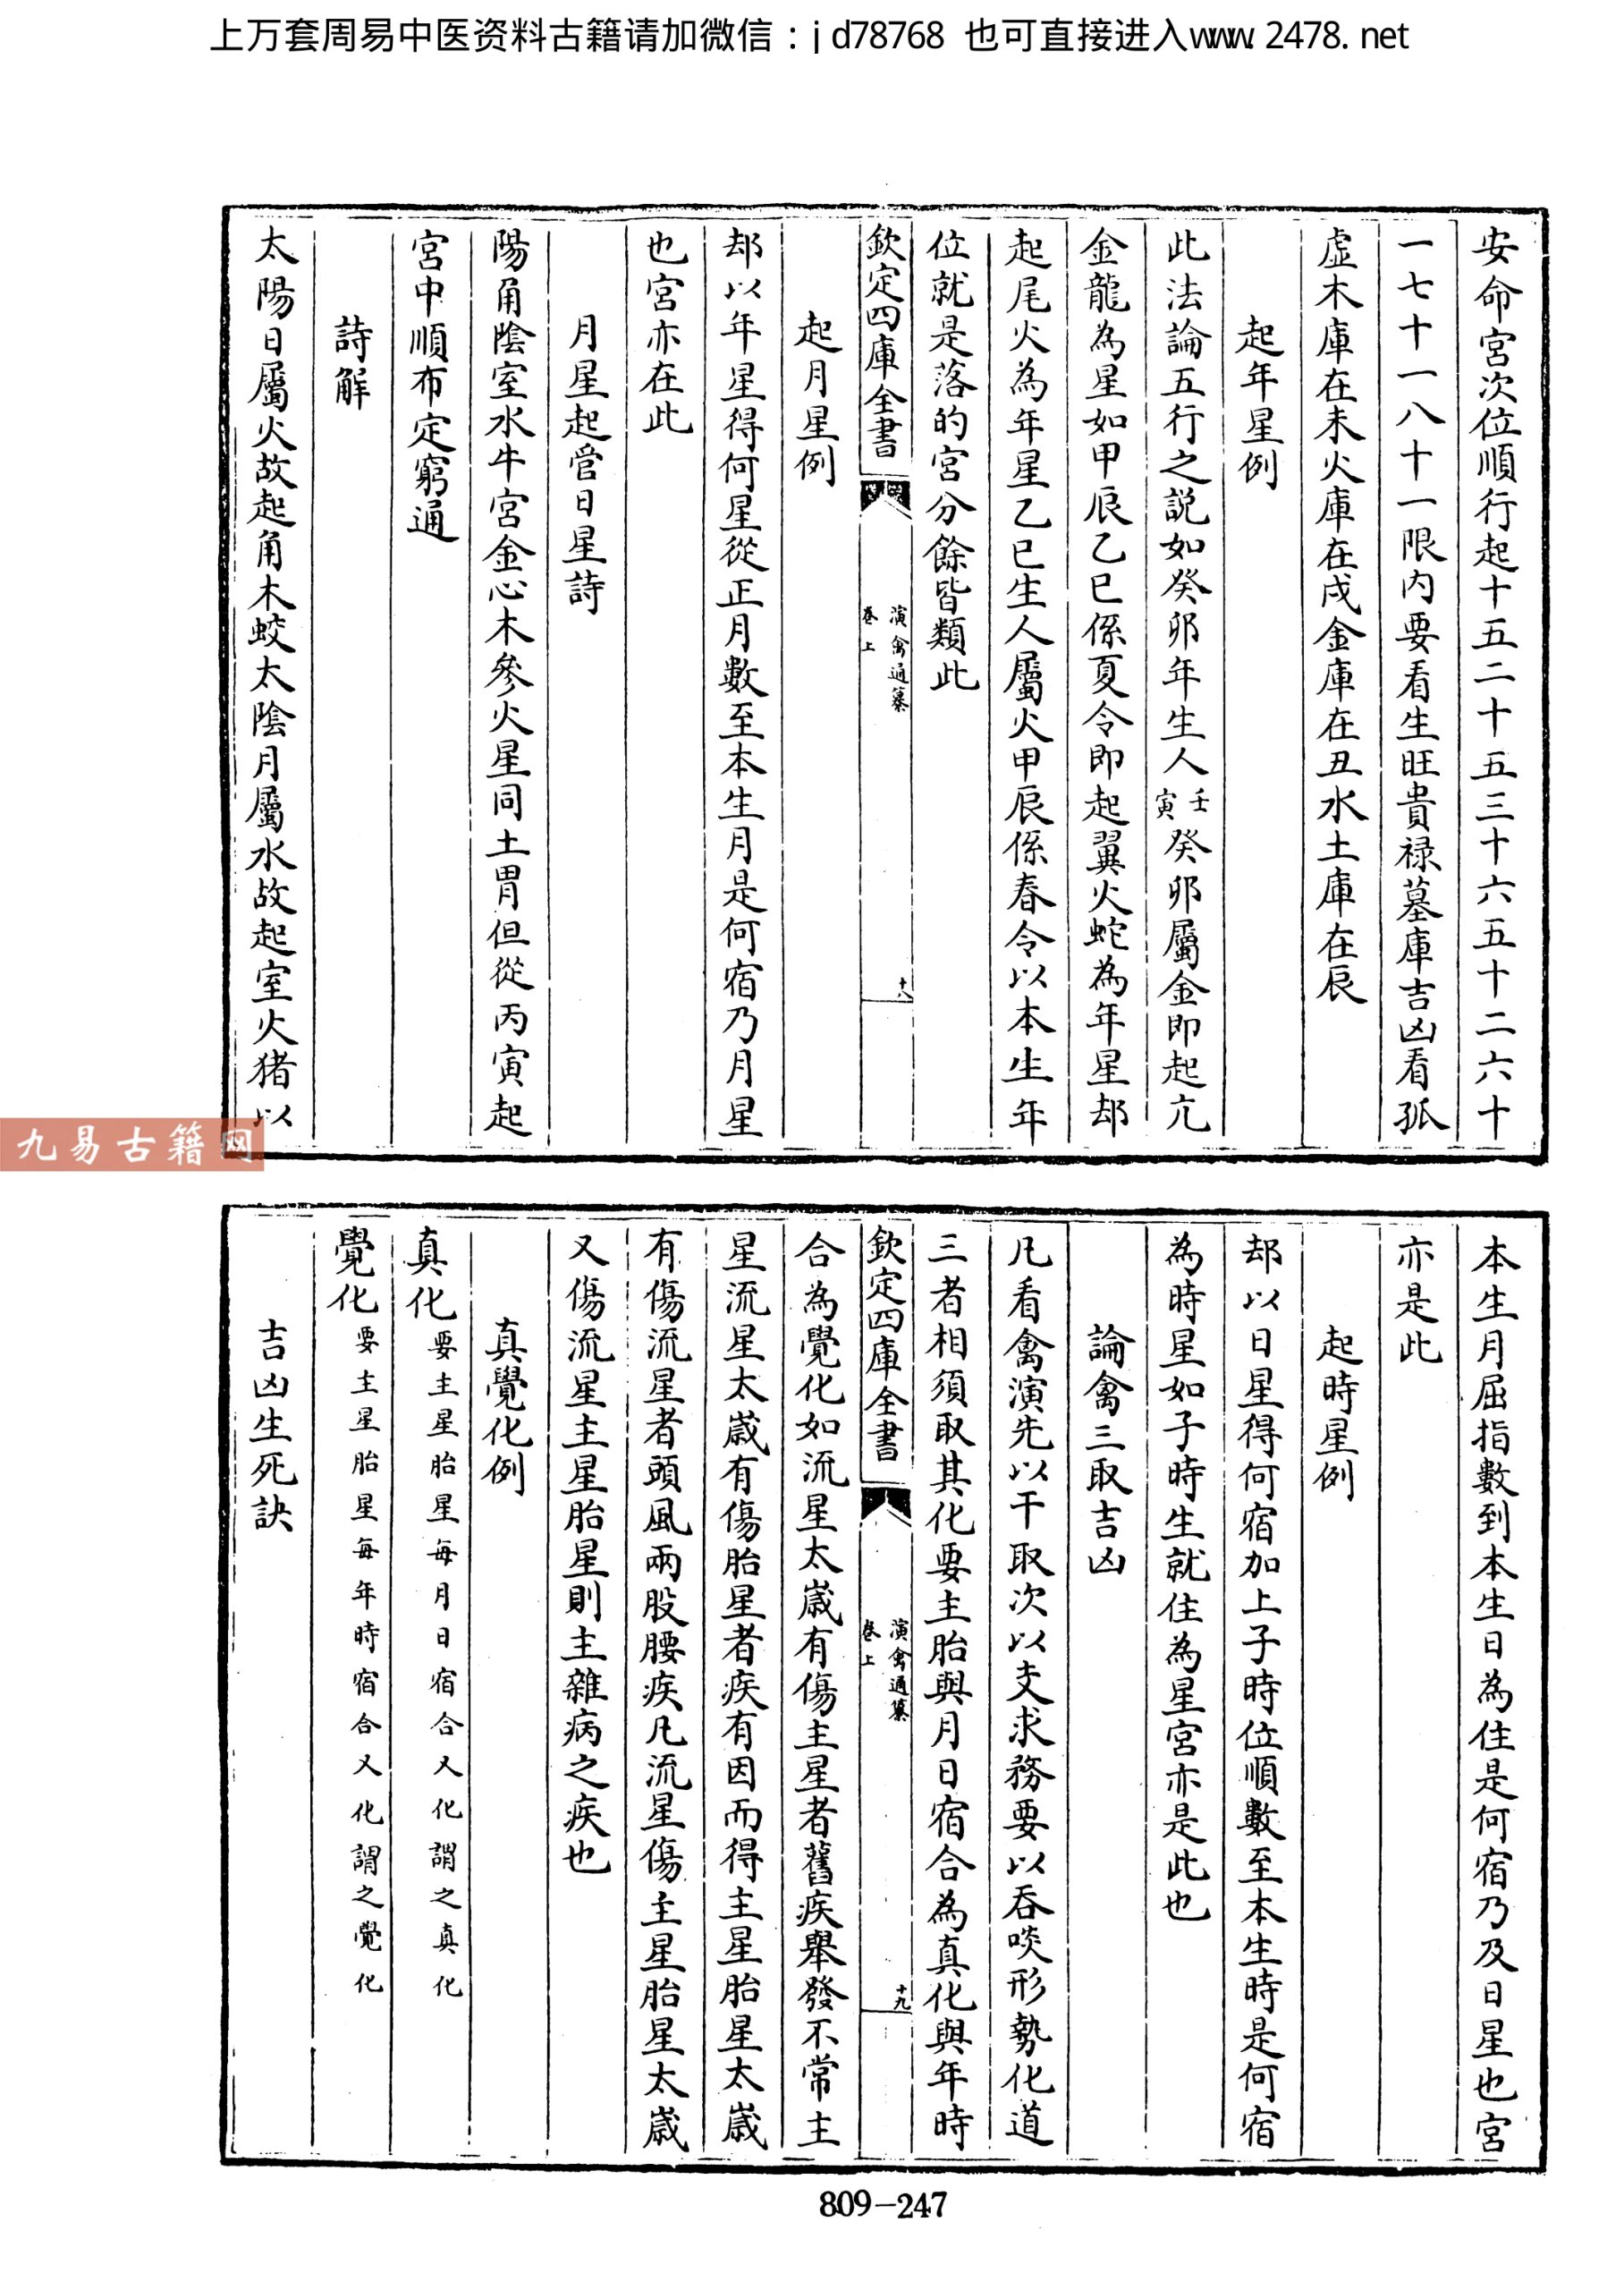 上万套周易中医资料古籍请加微信：jd78768 也可直接进入www.2478.net
安命宮次位順行起十五二十五三十六五十二六十
一七十一八十一限内要看生旺貴禄墓庫吉凶看孤
虛木庫在未火庫在戌金庫在丑水土庫在辰
起年星例
此法論五行之説如癸卯年生人壬寅癸卯屬金即起亢
金龍為星如甲辰乙巳係夏令即起翼火蛇為年星却
起尾火為年星乙巳生人屬火甲辰係春令以本生年
位就是落的宮分餘皆類此
欽定四庫全書
演禽通纂
卷上
十八
起月星例
却以年星得何星從正月數至本生月是何宿乃月星
也宮亦在此
月星起營日星詩
陽角陰室水牛宮金心木參火星同土胃但從丙寅起
宮中順布定窮通
詩解
太陽日屬火故起角木蛟太陰月屬水故起室火猪以
九易古籍网
本生月屈指數到本生日為住是何宿乃及日星也宮
亦是此
起時星例
却以日星得何宿加上子時位順數至本生時是何宿
為時星如子時生就住為星宮亦是此也
論禽三取吉凶
凡看禽演先以干取次以支求務要以吞啖形勢化道
三者相須取其化要主胎與月日宿合為真化與年時
欽定四庫全書
演禽通纂
卷上
十九
合為覺化如流星太嵗有傷主星者舊疾舉發不常主
星流星太嵗有傷胎星者疾有因而得主星胎星太嵗
有傷流星者頭風兩股腰疾凡流星傷主星胎星太嵗
又傷流星主星胎星則主雜病之疾也
真覺化例
真化要主星胎星每月日宿合又化謂之真化
覺化要主星胎星每年時宿合又化謂之覺化
吉凶生死訣
809-247